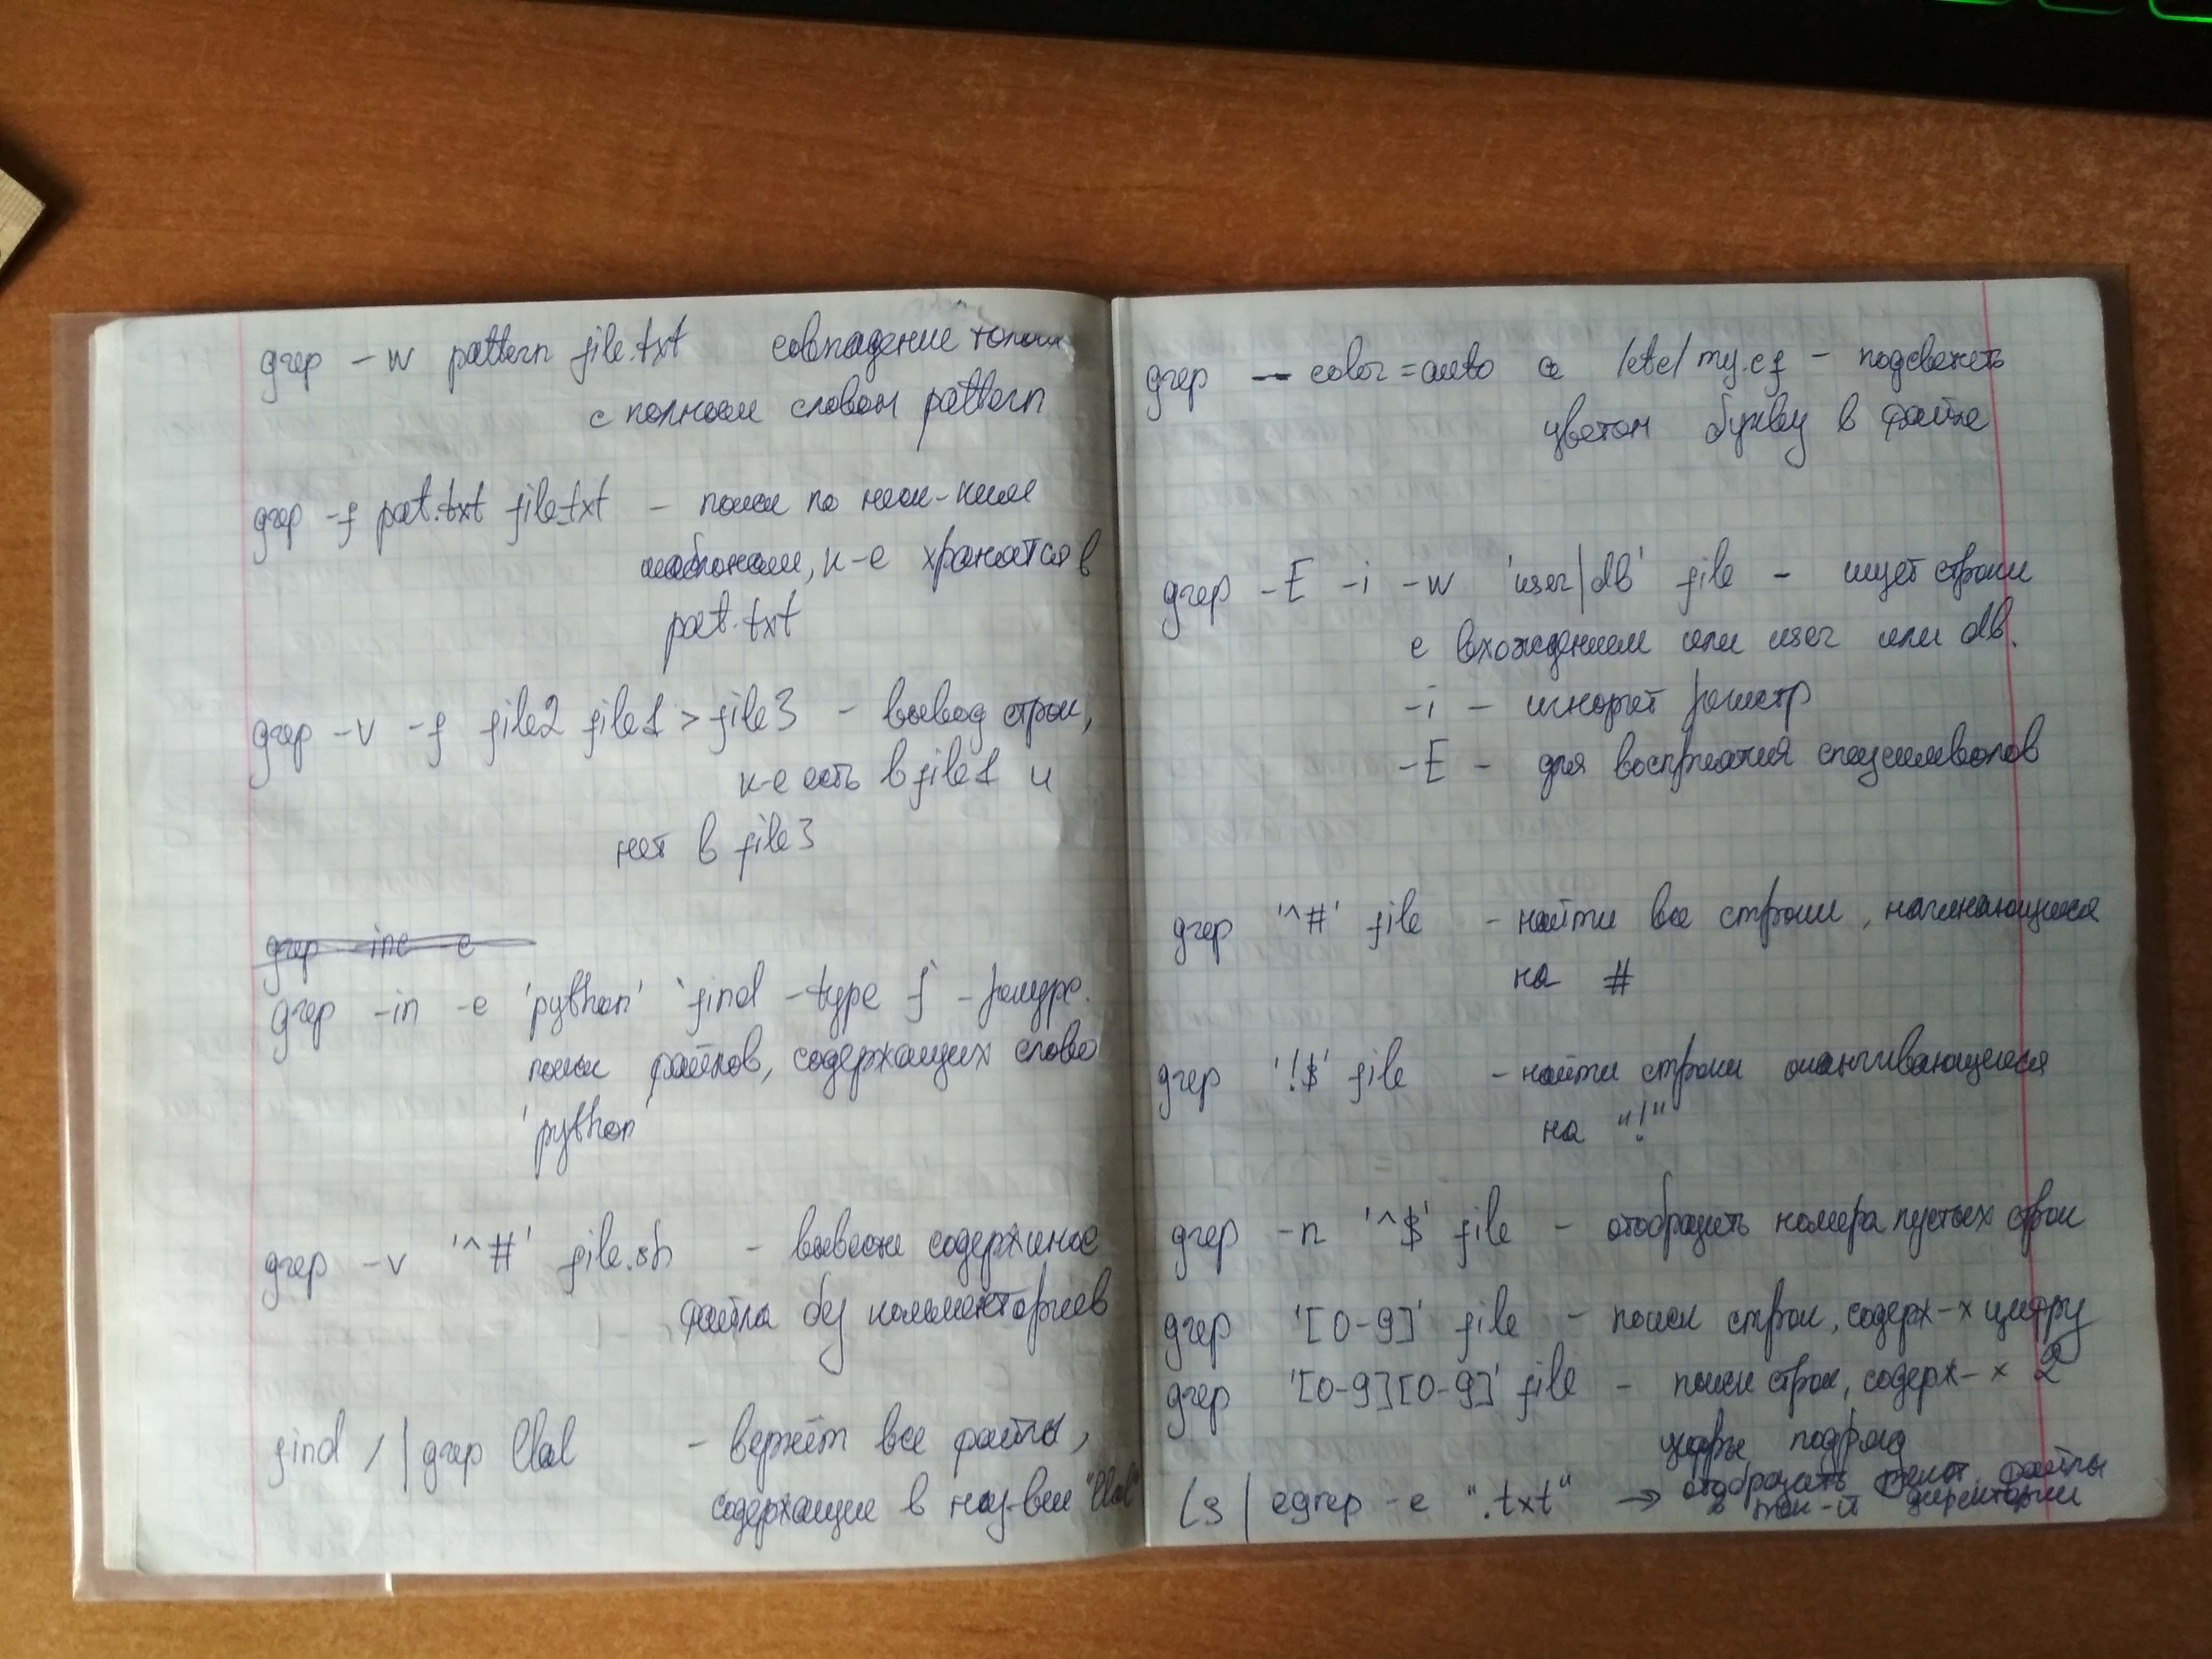 grep -w pattern file.txt совпадение только
с полным словом pattern
grep -f pat.txt file.txt - поиск по неск-ким
шаблонам, к-е хранятся в
pat.txt
grep -v -f file2 file1 > file3 - вывод строк,
к-е есть в file1 и
нет в file3
grep -inc -e
grep -in -e 'python' `find -type f` - рекурс.
поиск файлов, содержащих слово
'python'
grep -v '^#' file.sh - вывести содержимое
файла без комментариев
find / | grep lol - вернёт все файлы,
содержащие в наз-вии "lol"
grep --color=auto a /etc/my.cf - подсветить
цветом букву в файле
grep -E -i -w 'user|db' file - ищет строки
с вхождением или user или db.
-i - игнорит регистр
-E - для восприятия спецсимволов
grep '^#' file - найти все строки, начинающиеся
на #
grep '!$' file - найти строки оканчивающиеся
на "!"
grep -n '^$' file - отобразить номера пустых строк
grep '[0-9]' file - поиск строк, содерж-х цифру
grep '[0-9][0-9]' file - поиск строк, содерж-х 2
цифры подряд
ls | egrep -e ".txt" → отобразить текст. файлы
в тек-й директории